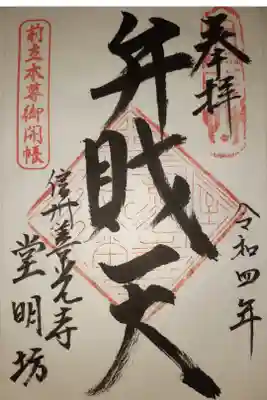 奉拝
令和四年
弁財天
信州善光寺
堂明坊
前立本尊御開帳